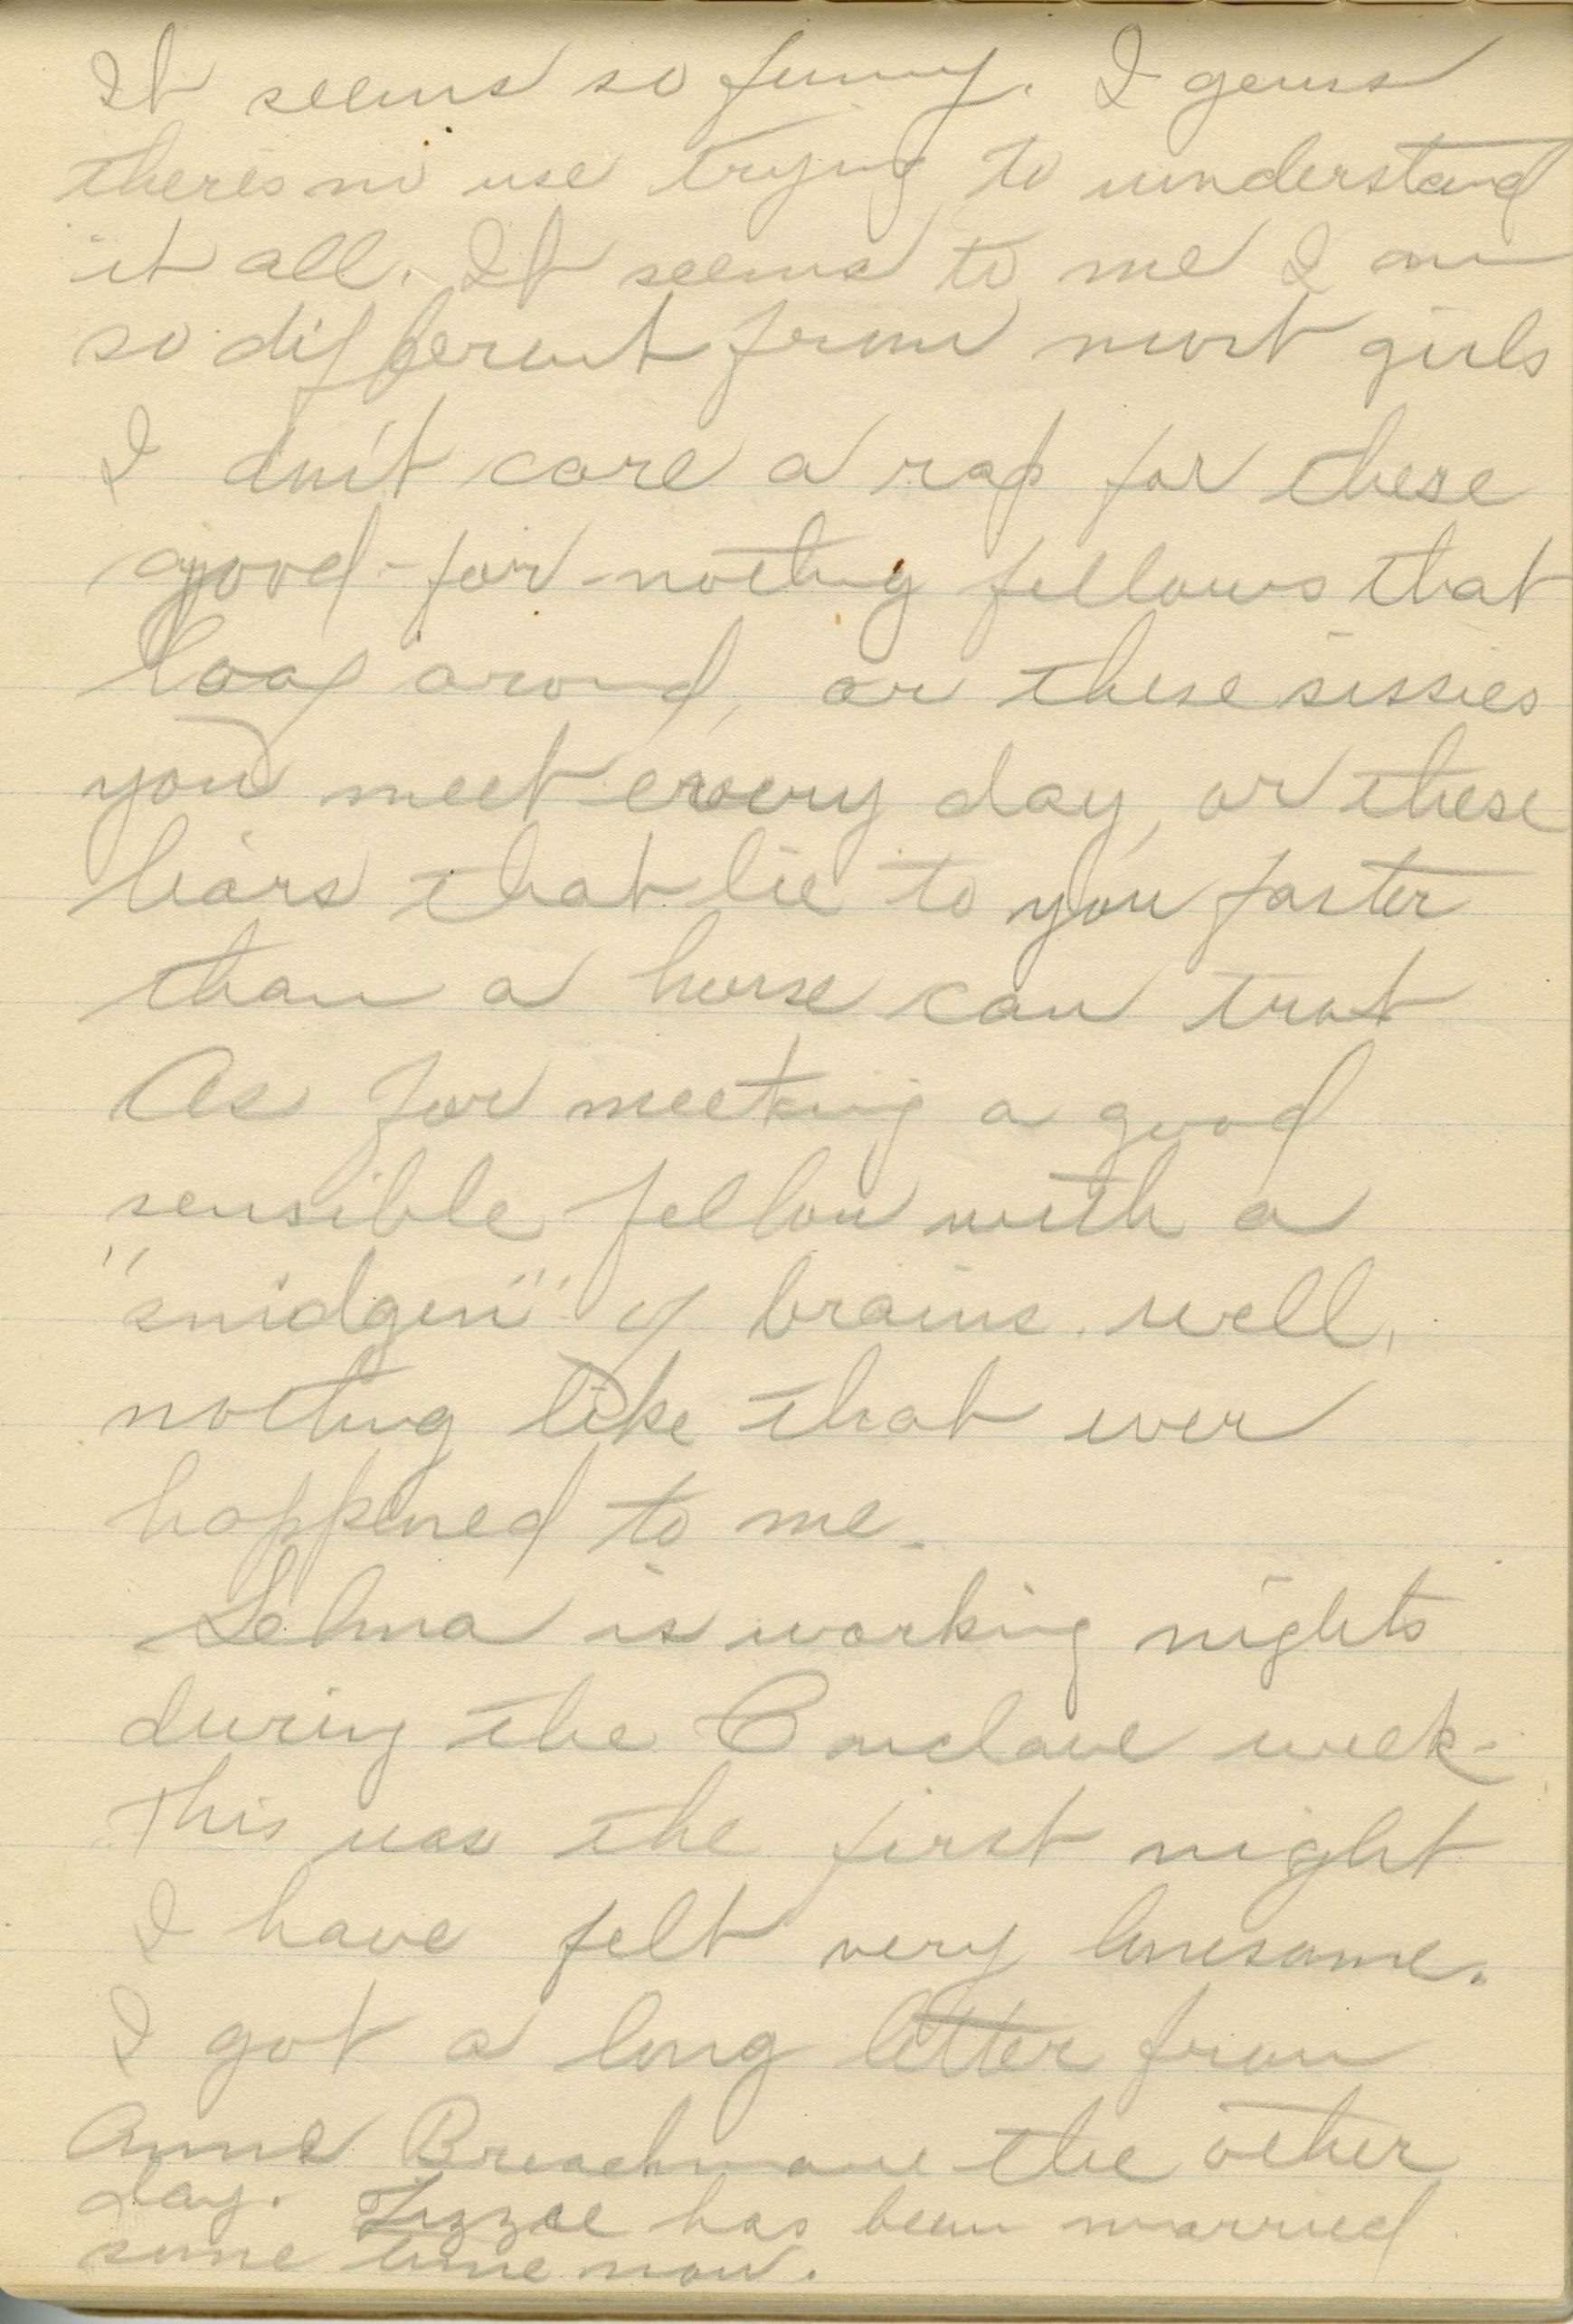 It seems so funny. I guess
there's no use trying to understand
it all. It seems to me I am
so different from most girls
I don't care a rap for these
good-for-nothing fellows that
loaf around, or these sissies
you meet every day, or these
liars that lie to you faster
than a horse can trot
As for meeting a good
sensible fellow with a
"smidgen" of brains. well,
nothing like that ever
happened to me.
Selma is working nights
during the Conclave week-
This was the first night
I have felt very lonesome.
I got a long letter from
Anna the other
day. Lizzie has been married
some time now.